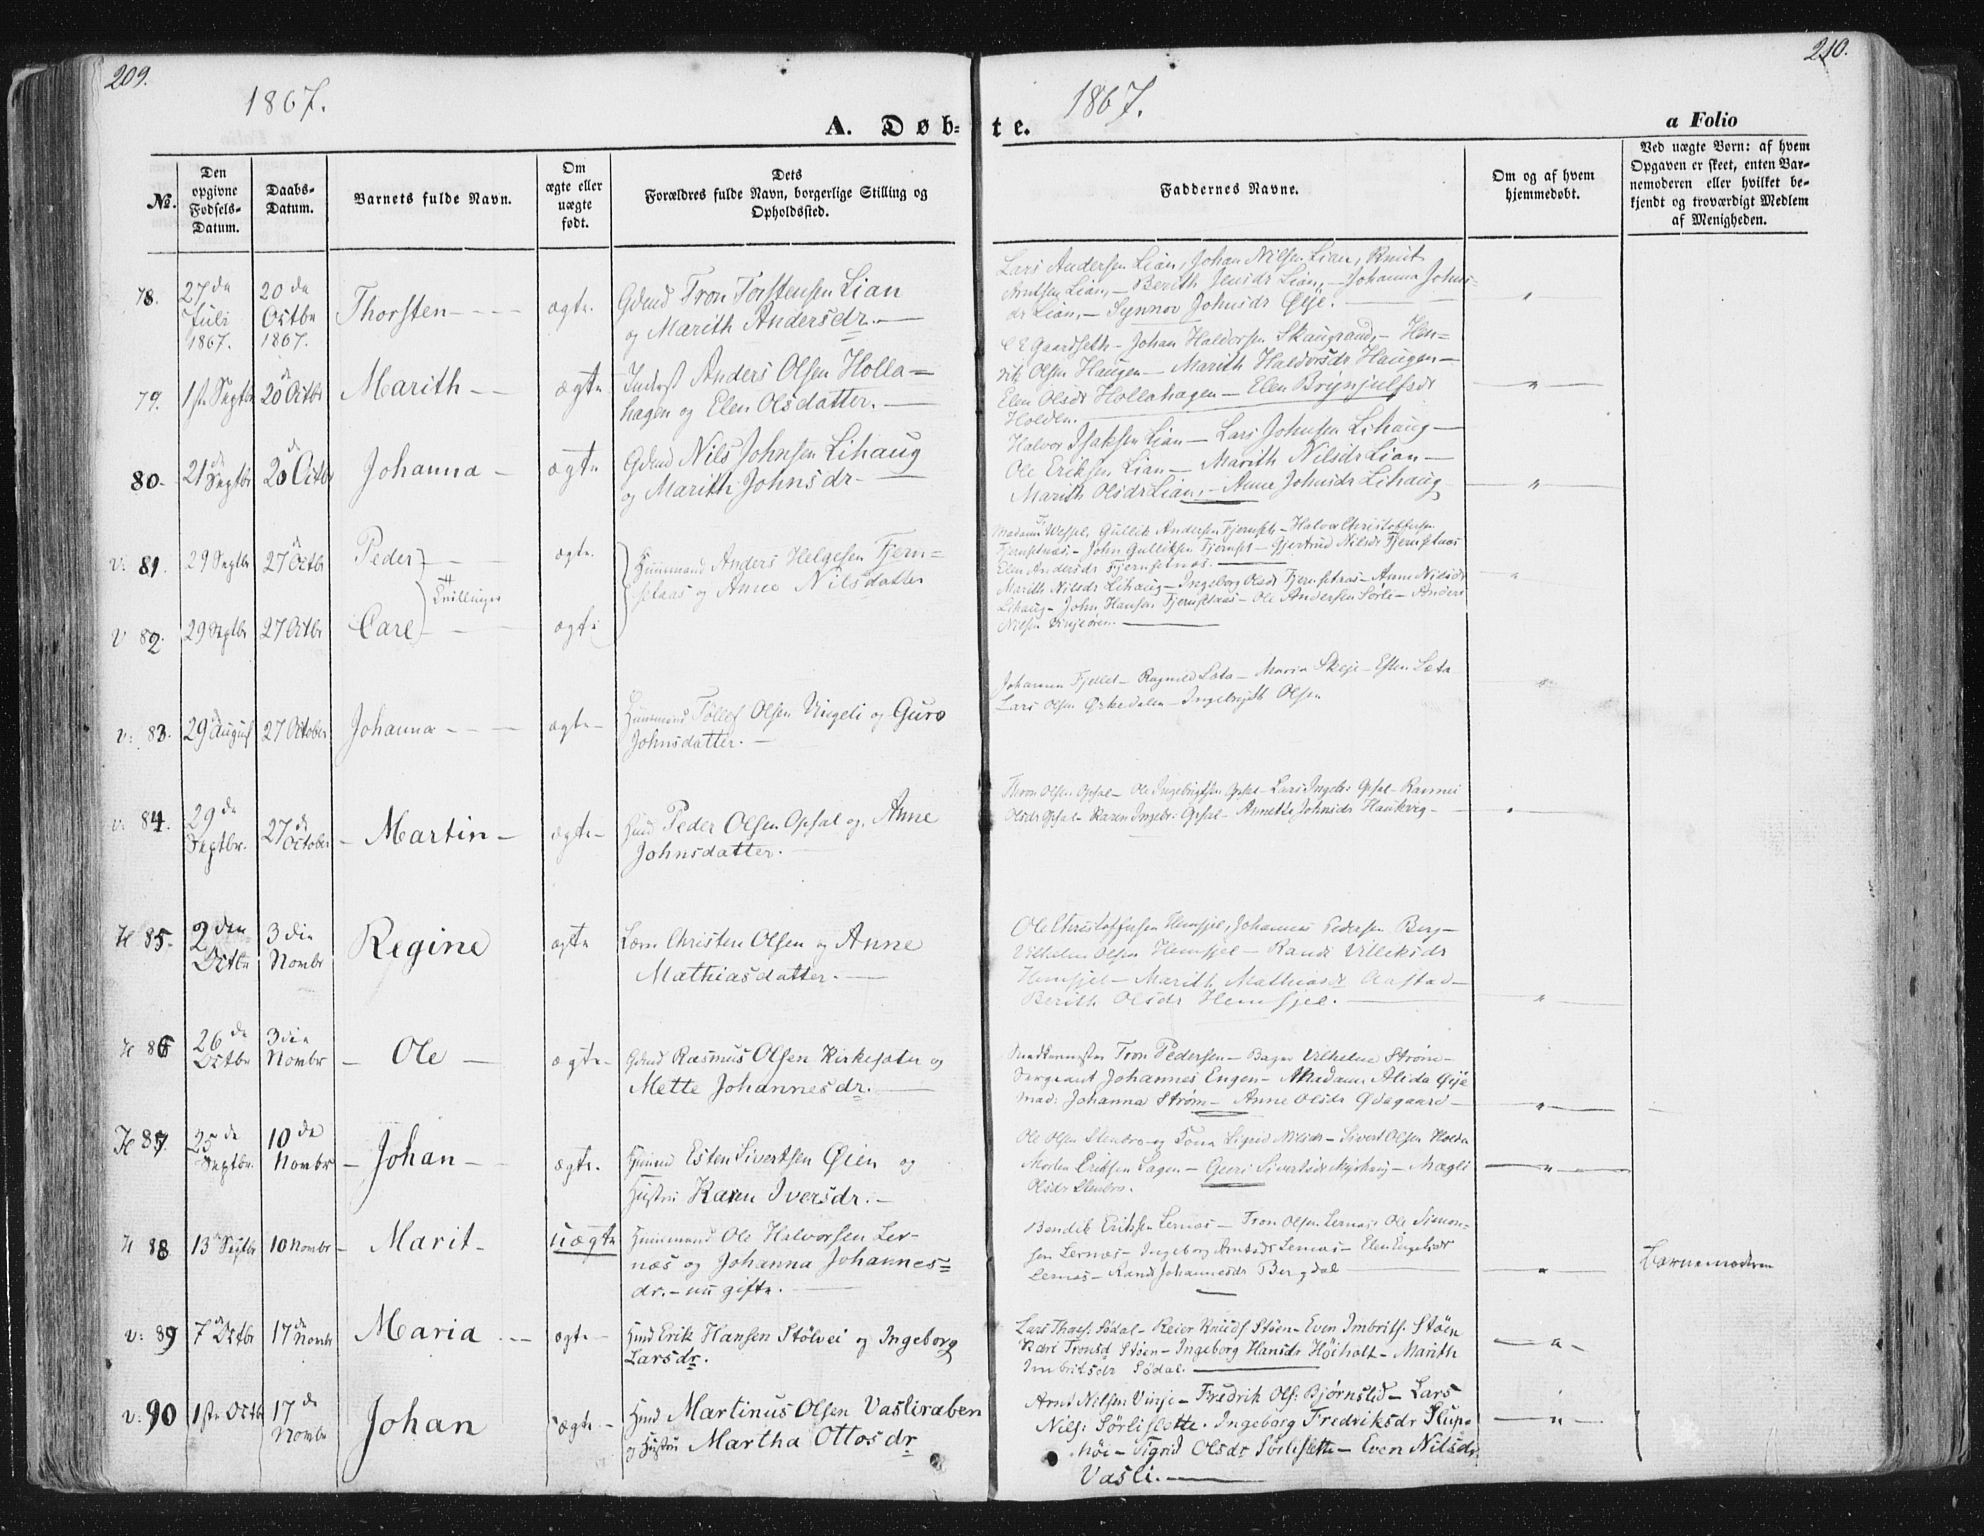 209.
210.
1867.
1867.
A. Døb-
te.
a Folio
No.
Den opgivne Fødsels-Datum.
Daabs-Datum.
Barnets fulde Navn.
Om ægte eller uægte født.
Dets Forældres fulde Navn, borgerlige Stilling og Opholdssted.
Faddernes Navne.
Om og af hvem hjemmedøbt.
Ved uægte Børn: af hvem Opgaven er skeet, enten Barnemoderen eller hvilket bekjendt og troværdigt Medlem af Menigheden.
78. 27de Juli 1867. 20de Octbr 1867. Thorsten ægte. Gdmd Tron Torstensen Lian
og Marith Andersdr.
Lars Andersen Lian, Johan Nilsen Lian, Knut
Arntsen Lian, - Berith Jensdr Lian, - Johanna Johns-
dr Lian, - Synnøv Johnsdr Øye.
79. 1ste Septbr 20de Octbr Marith ægte Inderst Anders Olsen Holla-
hagen og Elen Olsdatter.
Gaardseth - Johan Haldorsen Skaugrand - Hen-
rik Olsen Haugen - Marith Haldorsdr Haugen -
Elen Olsdr Hollahagen - Elen Brynjulfsdr
Holden.
80. 21de Septbr 20de Octbr Johanna ægte Gdmd Nils Johnsen Lihaug
og Marith Johnsdr.
Halvor Isaksen Lian - Lars Johnsen Lihaug -
Ole Eriksen Lian - Marith Nilsdr Lian -
Marith Olsdr Lian, - Anne Johnsdr Lihaug
V: 81. 29 Septbr 27de Octbr Peder ægte. Huusmand Anders Helgesen Fjern-
setaas og Anne Nilsdatter
Tvillinger
Madame Wessel, Gullik Andersen Fjernset - Halvor Christoffersen
Fjernsetaas, - John Gulliksen Fjernset - Gjertrud Nilsdr Fjernsetaas
Elen Andersdr Fjernsetaas.
V 82 29 Septbr 27 Octbr Carl ægte
Marith Nilsdr Lihaug - Ingeborg Olsdr Fjernsetaas - Anne Nilsdr
Lihaug - John Hansen Fjernsetaas - Ole Andersen Sørli - Anders
Nilsen Vinjeøren.
V: 83. 29 August 27 October Johanna ægte Huusmand Tollef Olsen Vingeli og Guro
Johnsdatter.
Johannes Fjellet - Ragnild Læta - Maria Skeje - Esten Læta
Lars Olsen Ørkedalen - Ingebrigt Olsen
V: 84. 29de Septbr. 27de October Martin ægte Hmd Peder Olsen Opsal og Anne
Johnsdatter.
Thron Olsen Opsal - Ole Ingebrigtsen Opsal - Lars Ingebr: Opsal -
Olsdr Opsal - Karen Ingebr: Opsal - Annette Johnsdr Haukvig -
H 85. 2den Octbr 3die Novmbr Regine ægte Christen Olsen og Anne
Mathiasdatter.
Ole Christoffersen Hemsjel, Johannes Pedersen Berg -
Vilhelm Olsen Hemsjel - Randi Villeksdr
Hemsjel - Marith Mathiasdr Aastad -
Berith Olsdr Hemsjel.
H 86 26de Octbr 3die Novmbr Ole ægte Gdmd Rasmus Olsen Kirkesæter og
Mette Johannesdr.
Tron Pedersen - Bager Vilhelm Strøm -
Sergeant Johannes Engen - Madame Alida Øye
Mad: Johanna Strøm - Anne Olsdr Ødegaard -
H 87. 25de Septbr. 10de Novmbr Johan ægte. Huusmd Esten Sivertsen Øien og
Hustru Karen Iversdr.
Ole Olsen Stenbro og Kona Sigrid Nilsdr - Sivert Olsen Holden
Morten Eriksen Sagen - Guri Sivertsdr - Magli
Olsdr Stenbro.
H 88 13de Septbr 10 Novmbr Marit uægte Huusmand Ole Halvorsen Ler-
næs og Johanna Johannes-
dr. - ugifte.
Bendik Eriksen Lernæs - Tron Olsen Lernæs Ole Simon-
sen Lernæs - Ingeborg Arntsdr Lernæs - Elen Engelsdr
Lernæs - Randi Johannesdr Bergdal
Barnemoderen
V: 89 7de Octbr 17de Novmbr Maria ægte Hmd Erik Hansen Stølvei og Ingeborg
Larsdr.
Lars Thoes: Sødal - Reier Knuds: Støen - Even Imbrits: Støen
Kari Tronsd Støen - Ingeborg Hansdr Höiholt - Marith
Imbritsdr Sødal.
V: 90 1ste Octbr 17de Novmbr Johan ægte Hmd Martinus Olsen Vasliraben
og Hustru Martha Ottosdr
Arnt Nilsen Vinje - Fredrik Ols: Bjørnslid - Lars
Nils: Sørlislette. Ingeborg Fredriksdr Slupe
Møe - Sigrid Olsdr Sørlislette - Even Nilsdr
Vasli.